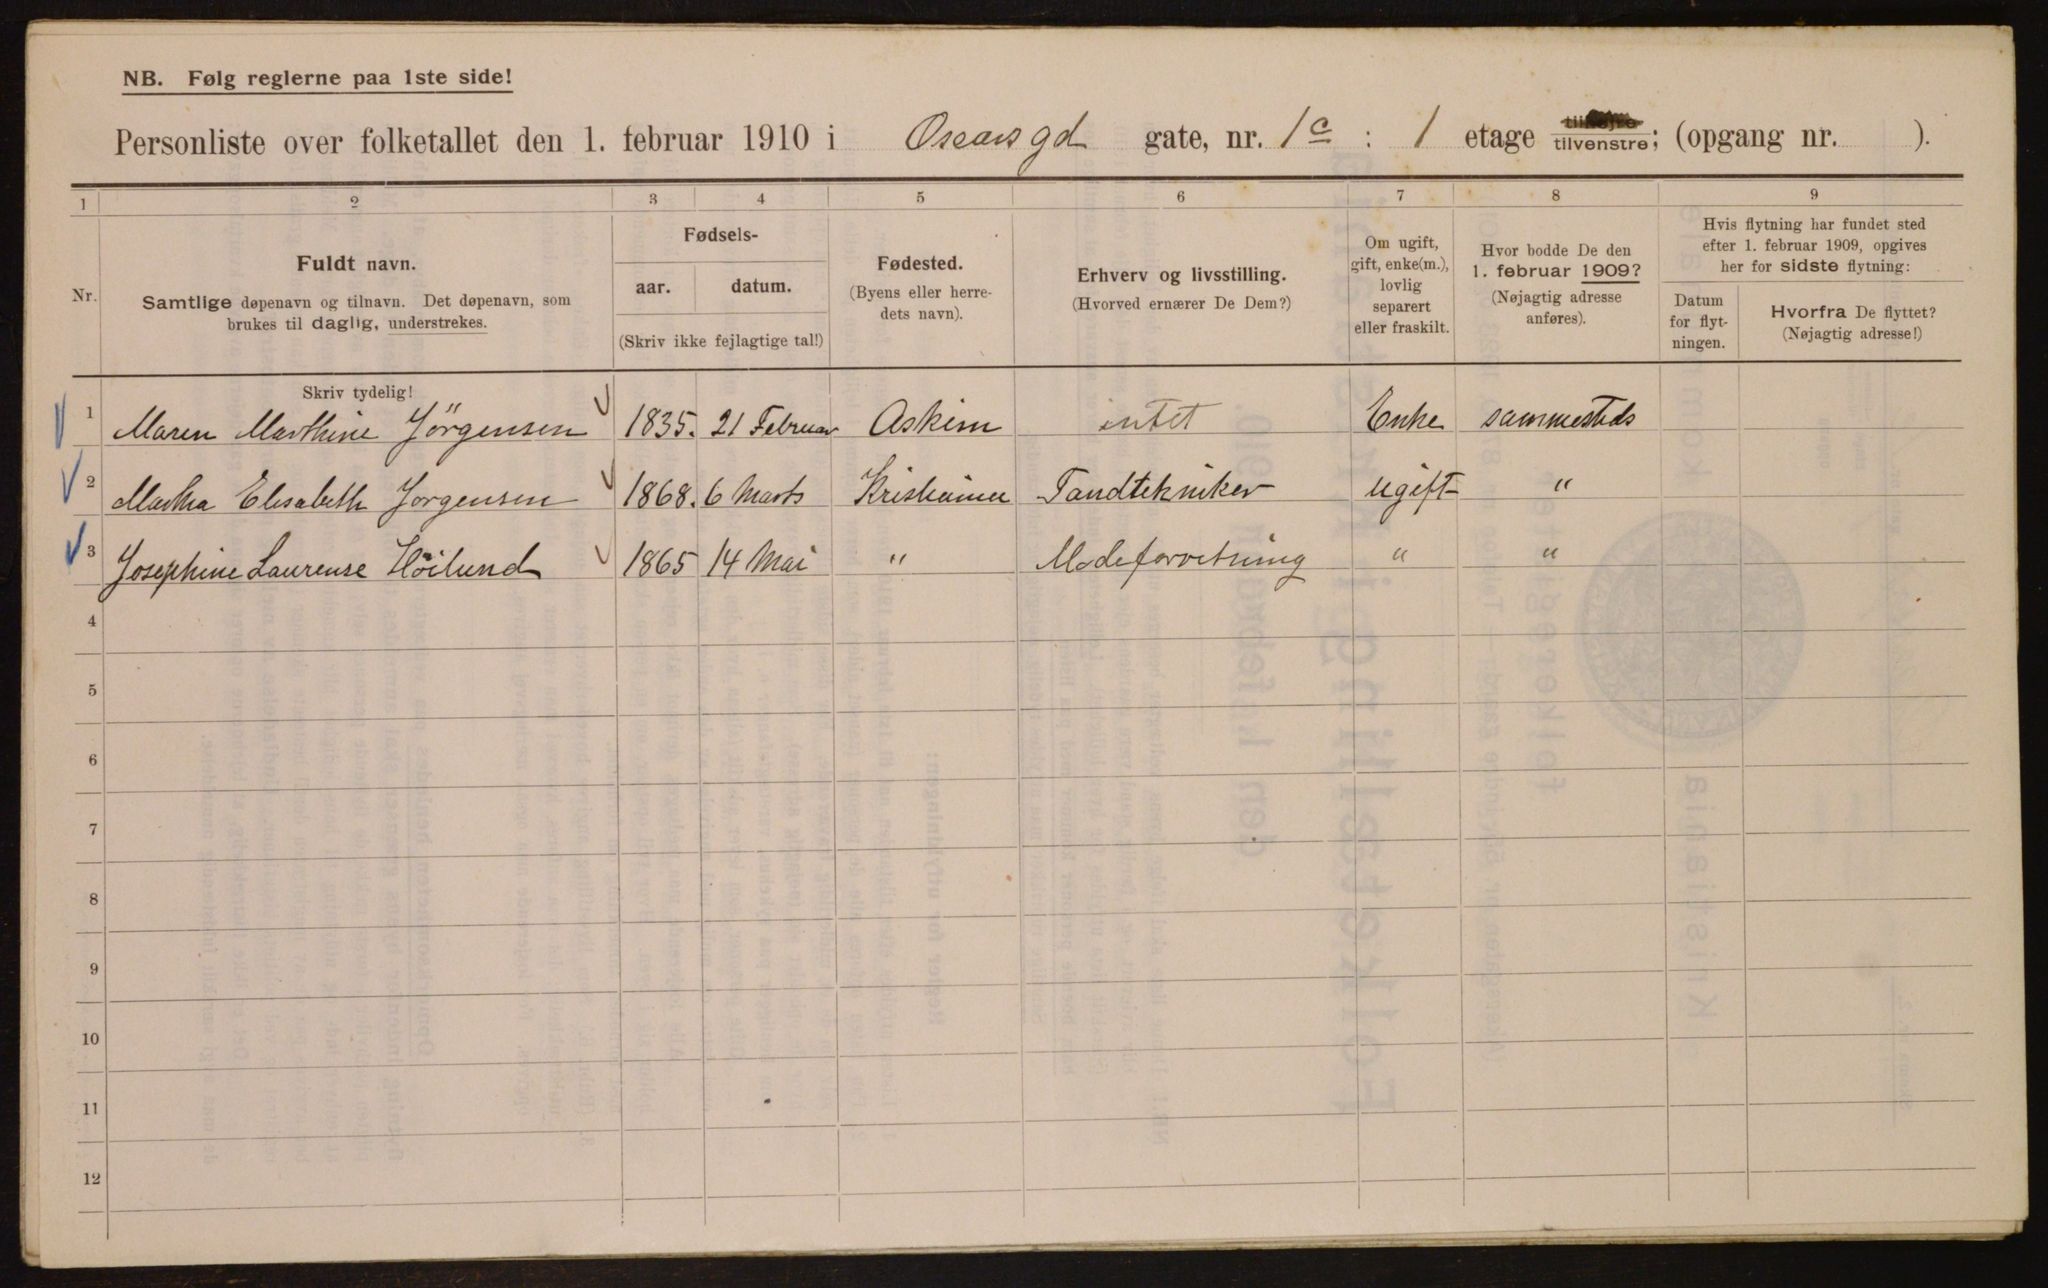 NB. Følg reglerne paa 1ste side!
Personliste over folketallet den 1. februar 1910 i Oscarsgd gate, nr. 1c : 1 etage tilhøjre tilvenstre; (opgang nr. ).
1 2 3 4 5 6 7 8 9
Nr.
Fuldt navn.
Samtlige døpenavn og tilnavn. Det døpenavn, som
brukes til daglig, understrekes.
Fødsels-
aar. datum.
(Skriv ikke fejlagtige tal!)
Fødested.
(Byens eller herre-
dets navn).
Erhverv og livsstilling.
(Hvorved ernærer De Dem?)
Om ugift,
gift, enke(m.),
lovlig
separert
eller fraskilt.
Hvor bodde De den
1. februar 1909?
(Nøjagtig adresse
anføres).
Hvis flytning har fundet sted
efter 1. februar 1909, opgives
her for sidste flytning:
Datum
for flyt-
ningen.
Hvorfra De flyttet?
(Nøjagtig adresse!)
Skriv tydelig!
1 Maren Marthine Jörgensen 1835. 21 Februar Askim intet Enke sammesteds
2 Martha Elisabeth Jorgensen 1868. 6 Marts Kristiania Tandtekniker ugift "
3 Josephine Laurense Höilund 1865 14 Mai " Modeforretning " "
4
5
6
7
8
9
10
11
12